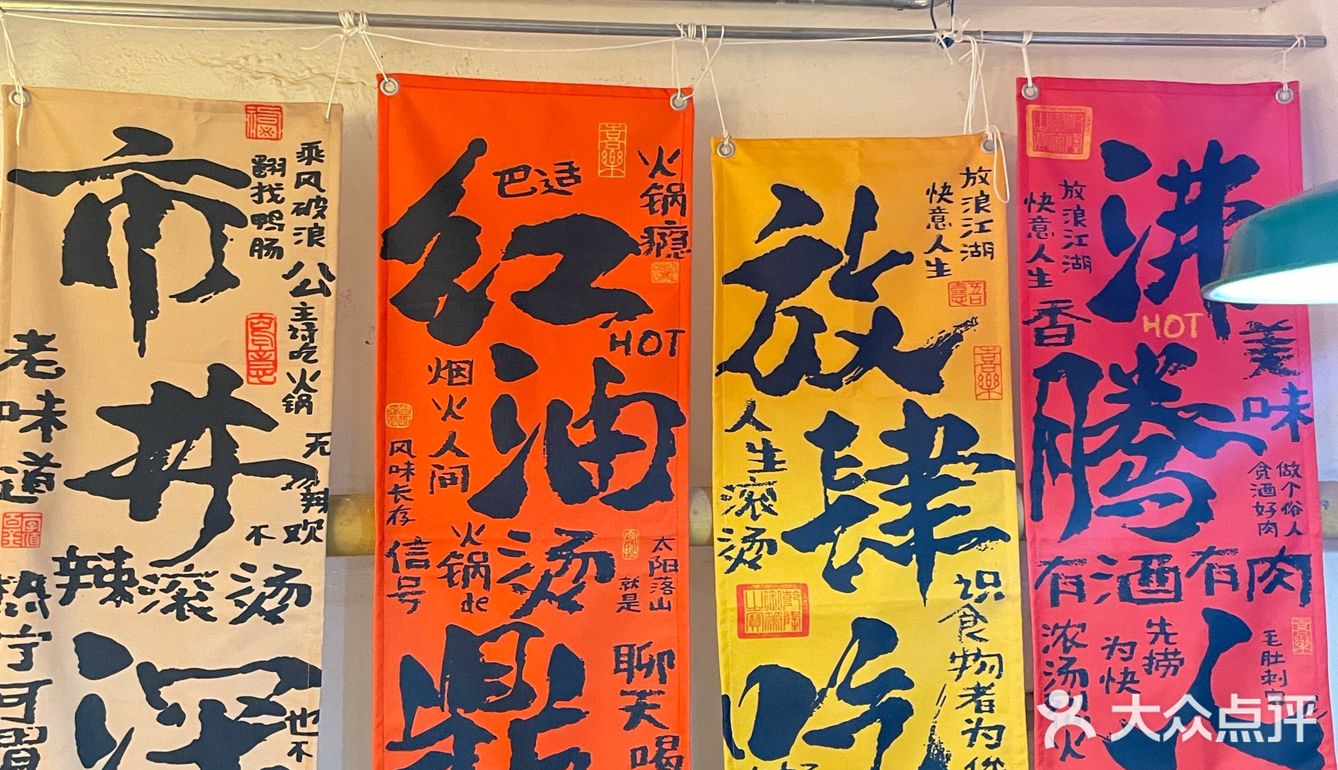 市井深
乘风破浪
翻找鸭肠
公主请吃火锅
无辣不欢
老味道
辣滚烫
也不
红油鼎
巴适
火锅瘾
HOT
烟火人间
风味长存
火锅de
信号
烫
太阳落山
就是
聊天喝
喜樂
放肆吃
放浪江湖
快意人生
人生滚烫
识食物者为俊
喜樂
沸腾人
放浪江湖
快意人生
香
HOT
美味
做个俗人
贪酒好肉
有酒有肉
浓汤
火
先捞
为快
毛肚刺
喜樂
大众点评